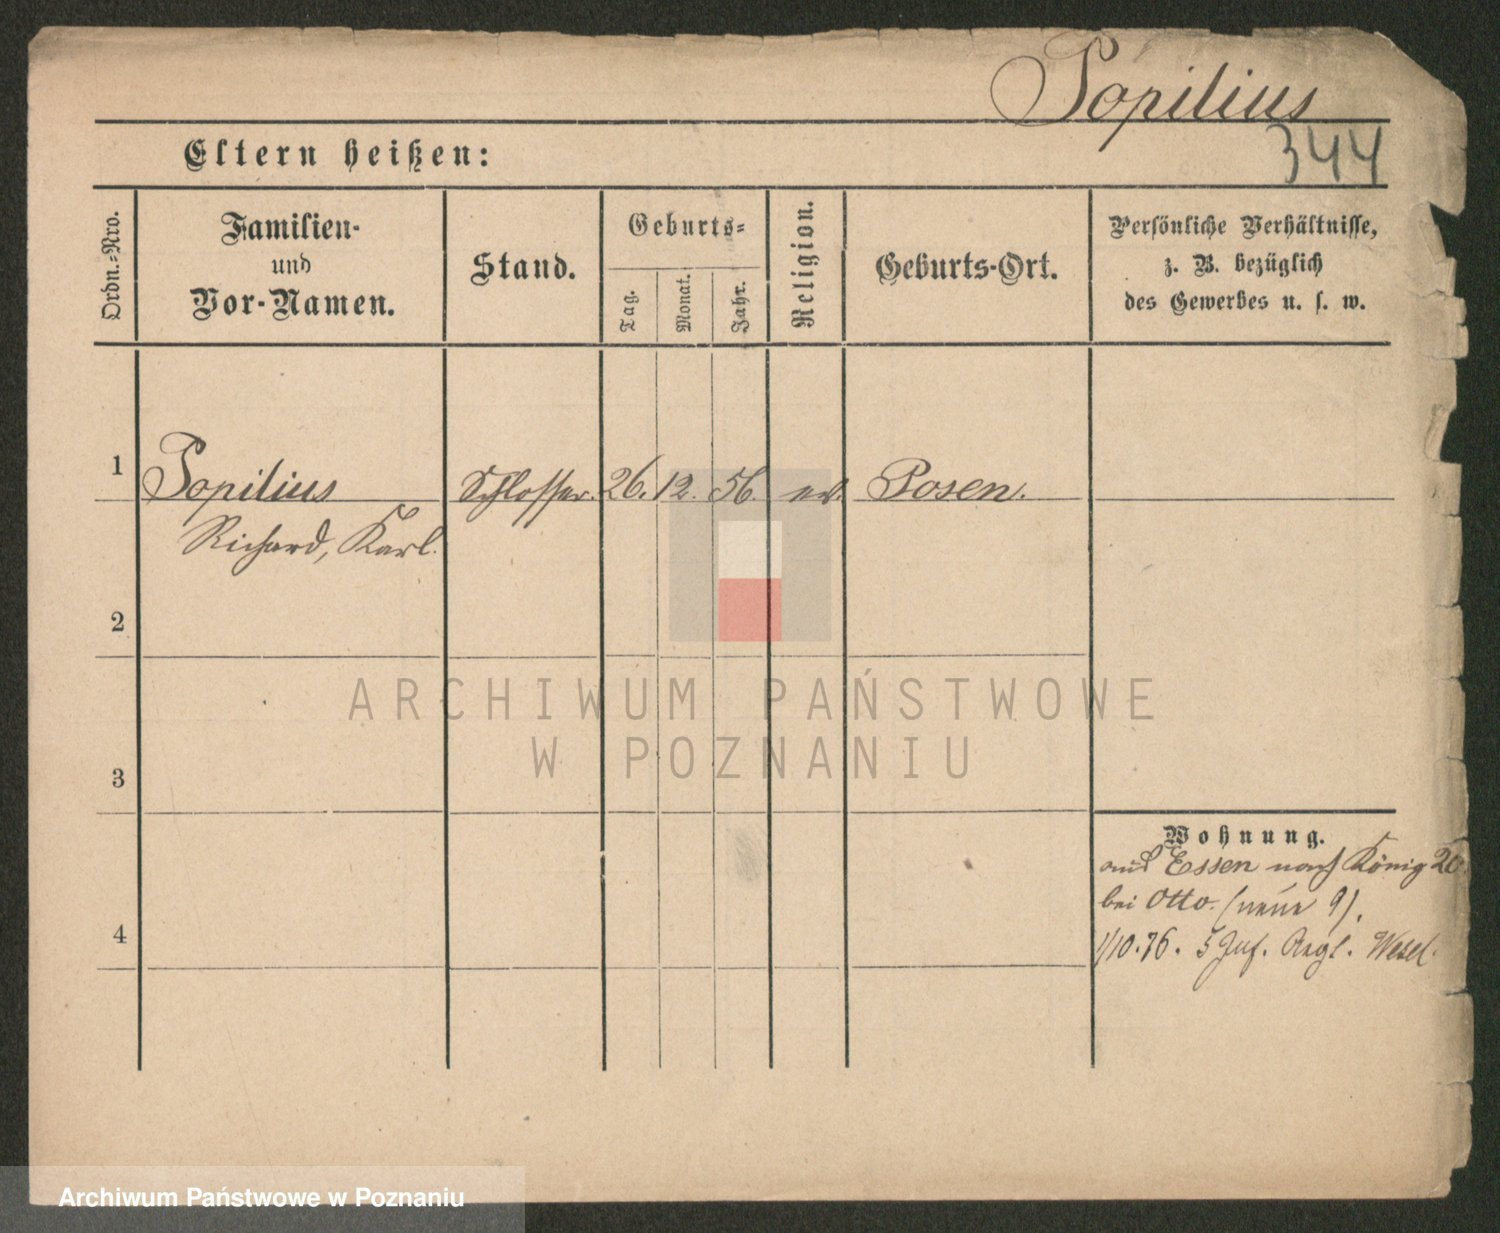 Popilius
344
Eltern heißen:
Ordn.-Nro.
Familien-
und
Vor-Namen.
Stand.
Geburts-
Tag.
Monat.
Jahr.
Religion.
Geburts-Ort.
Persönliche Verhältnisse,
z. B. bezüglich
des Gewerbes u. s. w.
1
Popilius
Schlosser.
26.
12.
56.
ev.
Posen.
Richard, Karl.
2
ARCHIWUM PAŃSTWOWE
W POZNANIU
3
Wohnung.
aus Essen nach König 20
bei Otto. (neue 9).
1/10.76. 5 Inf. Regt. Wesel.
4
Archiwum Państwowe w Poznaniu